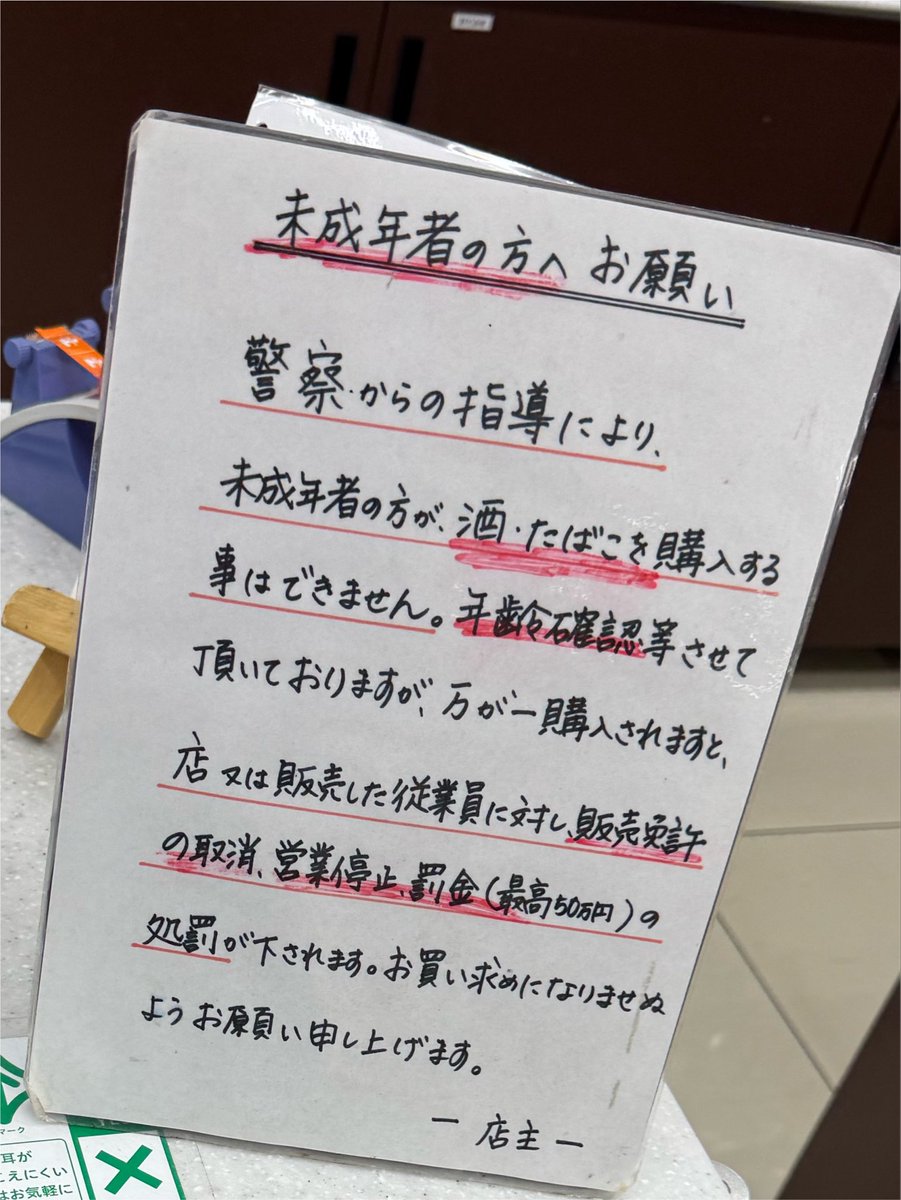 未成年者の方へ お願い
警察からの指導により、
未成年者の方が、酒・たばこを購入する
事はできません。年齢確認等させて
頂いておりますが、万が一購入されますと、
店又は販売した従業員に対し、販売免許
の取消、営業停止、罰金(最高50万円)の
処罰が下されます。お買い求めになりませぬ
ようお願い申し上げます。
― 店主 ―
マーク
耳が
こえにくい
はお気軽に